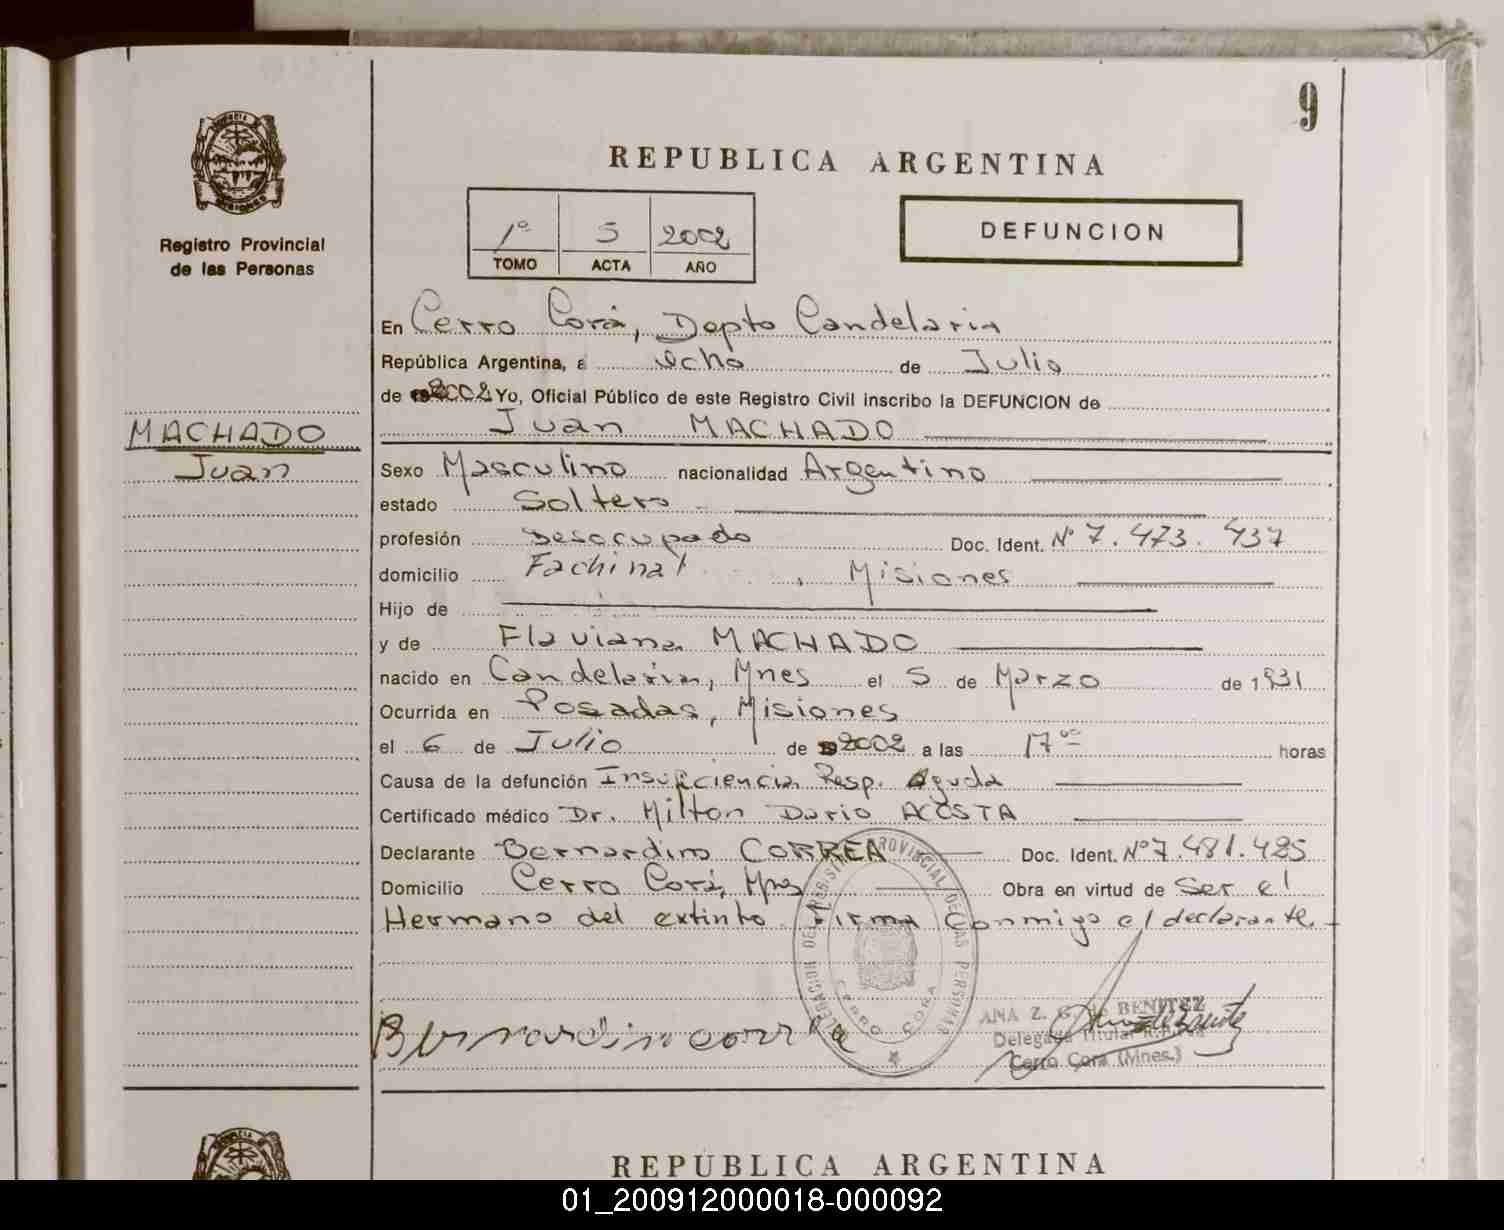 9
REPUBLICA ARGENTINA
1º 5 2002
TOMO ACTA AÑO
DEFUNCION
Registro Provincial
de las Personas
MACHADO
Juan
En Cerro Corá, Depto Candelaria
República Argentina, a ocho de Julio
de 2002 Yo, Oficial Público de este Registro Civil inscribo la DEFUNCION de
Juan MACHADO
Sexo Masculino nacionalidad Argentino
estado Soltero
profesión Desocupado Doc. Ident. Nº 7.473.437
domicilio Fachinal, Misiones
Hijo de
y de Flaviana MACHADO
nacido en Candelaria, Mnes el 5 de Marzo de 1931
Ocurrida en Posadas, Misiones
el 6 de Julio de 2002 a las 17 oo horas
Causa de la defunción Insuficiencia Resp. Aguda
Certificado médico Dr. Milton Dario ACOSTA
Declarante Bernardino CORREA Doc. Ident. Nº 7.481.425
Domicilio Cerro Corá, Mnes Obra en virtud de Ser el
Hermano del extinto. Firma Conmigo el declarante.-
PROVINCIAL DE LAS PERSONAS
CERRO CORA
Bernardino correa
ANA Z. G. de BENITEZ
Delegada Titular
Cerro Cora (Mnes.)
REPUBLICA ARGENTINA
01_200912000018-000092